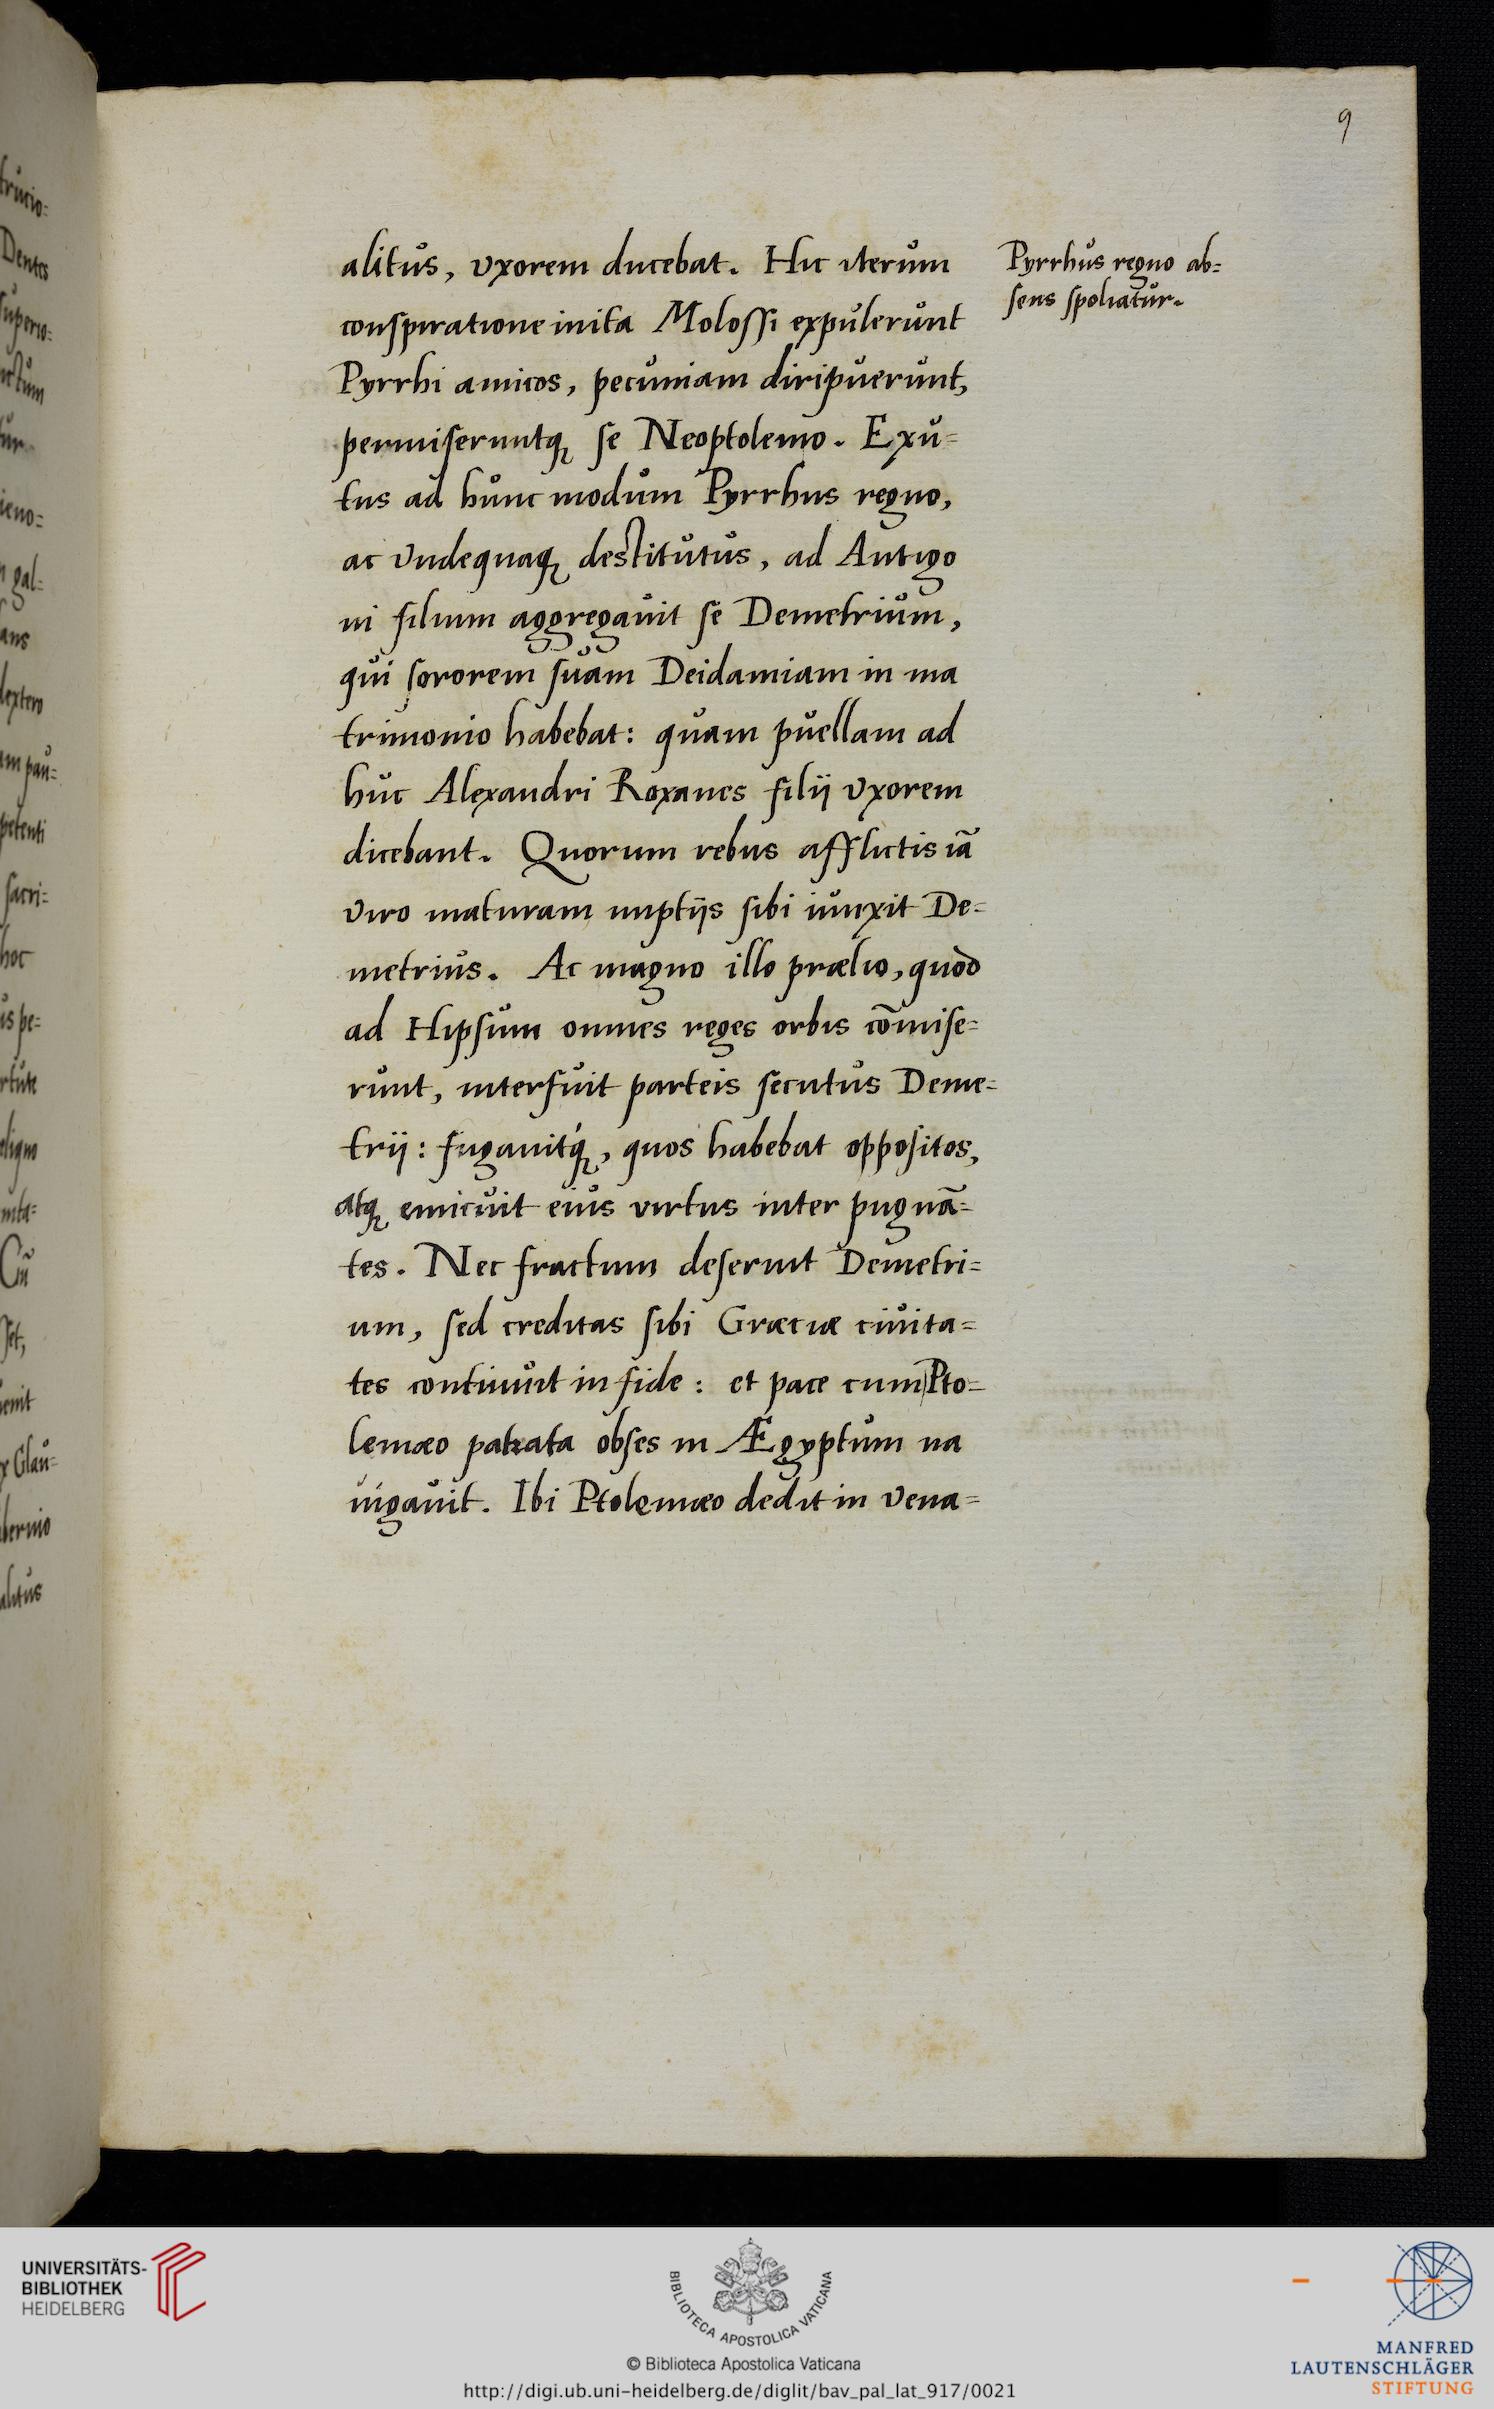 9
alitus, vxorem ducebat. Hic iterum
conspiratione inita Molossi expulerunt
Pyrrhi amicos, pecuniam diripuerunt,
permiseruntq; se Neoptolemo. Exu=
tus ad hunc modum Pyrrhus regno,
ac vndequaq; destitutus, ad Antigo
ni filium aggregauit se Demetrium,
qui sororem suam Deidamiam in ma
trimonio habebat: quam puellam ad
huc Alexandri Roxanes filij vxorem
dicebant. Quorum rebus afflictis iā
viro maturam nuptijs sibi iunxit De=
metrius. Ac magno illo prælio, quod
ad Hipsum omnes reges orbis cōmise=
runt, interfuit parteis secutus Deme=
trij: fugauitq́;, quos habebat oppositos,
atq; emicuit eius virtus inter pugnā=
tes. Nec fractum deseruit Demetri=
um, sed creditas sibi Græciæ ciuita=
tes continuit in fide: et pace cum Pto=
lemæo patrata obses in Ægyptum na
uigauit. Ibi Ptolemæo dedit in vena=
Pyrrhus regno ab=
sens spoliatur.
Dentes
gal=
ans
dextero
am pau=
petenti
sacri=
hoc
us pe=
mta=
Cū
set,
Glau=
alitus
UNIVERSITÄTS-
BIBLIOTHEK
HEIDELBERG
BIBLIOTECA APOSTOLICA VATICANA
© Biblioteca Apostolica Vaticana
http://digi.ub.uni-heidelberg.de/diglit/bav_pal_lat_917/0021
MANFRED
LAUTENSCHLÄGER
STIFTUNG